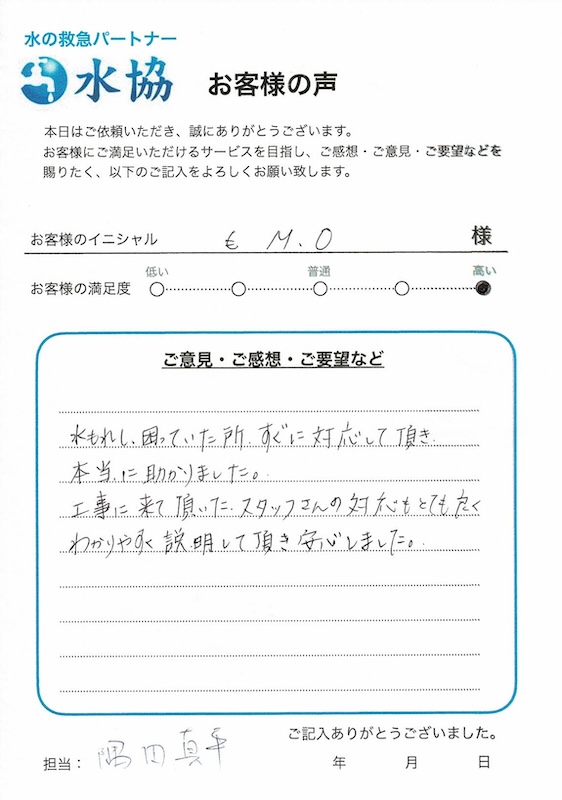 水の救急パートナー
水協 お客様の声
本日はご依頼いただき、誠にありがとうございます。
お客様にご満足いただけるサービスを目指し、ご感想・ご意見・ご要望などを
賜りたく、以下のご記入をよろしくお願い致します。
お客様のイニシャル M.O 様
低い 普通 高い
お客様の満足度
ご意見・ご感想・ご要望など
水もれし、困っていた所、すぐに対応して頂き
本当に助かりました。
工事に来て頂いた、スタッフさんの対応もとても良く
わかりやすく説明して頂き安心しました。
ご記入ありがとうございました。
担当： 隅田真 年 月 日